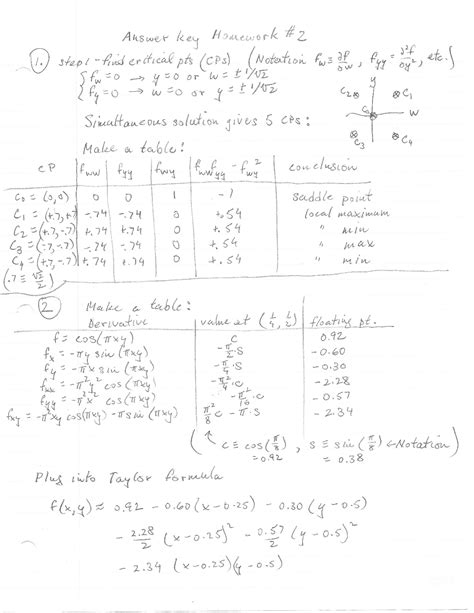 Answer Key Homework #2
1. step 1 - find critical pts (CPs) (Notation f_w ≡ ∂f/∂w, f_yy = ∂²f/∂y², etc.)
{ f_w = 0 → y = 0 or w = ± 1/√2
{ f_y = 0 → w = 0 or y = ± 1/√2
y
w
C2 C1
C0
C3 C4
Simultaneous solution gives 5 CPs:
Make a table:
CP | f_ww | f_yy | f_wy | f_ww f_yy - f_wy² | conclusion
C0 = (0,0) | 0 | 0 | 1 | -1 | saddle point
C1 = (+.7,+.7) | -.74 | -.74 | 0 | +.54 | local maximum
C2 = (-.7,+.7) | +.74 | +.74 | 0 | +.54 | " min
C3 = (-.7,-.7) | -.74 | -.74 | 0 | +.54 | " max
C4 = (+.7,-.7) | +.74 | +.74 | 0 | +.54 | " min
(.7 ≡ √2/2)
2 Make a table:
Derivative | value at | floating pt.
f = cos(πxy) | C | 0.92
f_x = -πy sin(πxy) | -π/2·S | -0.60
f_y = -πx sin(πxy) | -π/4·S | -0.30
f_xx = -π²y² cos(πxy) | -π²/4·C | -2.28
f_yy = -π²x² cos(πxy) | -π²/16·C | -0.57
f_xy = -π²xy cos(πxy) - π sin(πxy) | π²/8 C - π·S | -2.34
( C ≡ cos(π/8) = 0.92, S ≡ sin(π/8) = 0.38 ← Notation)
Plug into Taylor formula
f(x,y) ≈ 0.92 - 0.60(x-0.25) - 0.30(y-0.5)
- 2.28/2 (x-0.25)² - 0.57/2 (y-0.5)²
- 2.34 (x-0.25)(y-0.5)